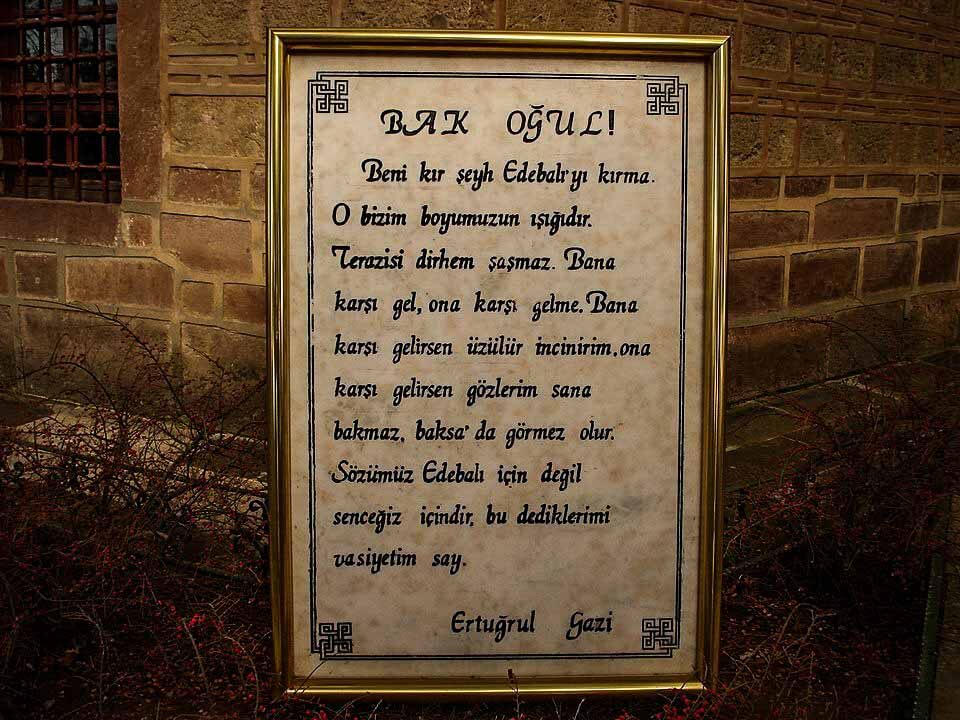 BAK OĞUL!
Beni kır şeyh Edebalı'yı kırma.
O bizim boyumuzun ışığıdır.
Terazisi dirhem şaşmaz. Bana
karşı gel, ona karşı gelme. Bana
karşı gelirsen üzülür incinirim, ona
karşı gelirsen gözlerim sana
bakmaz, baksa'da görmez olur.
Sözümüz Edebalı için değil
senceğiz içindir, bu dediklerimi
vasiyetim say.
Ertuğrul Gazi